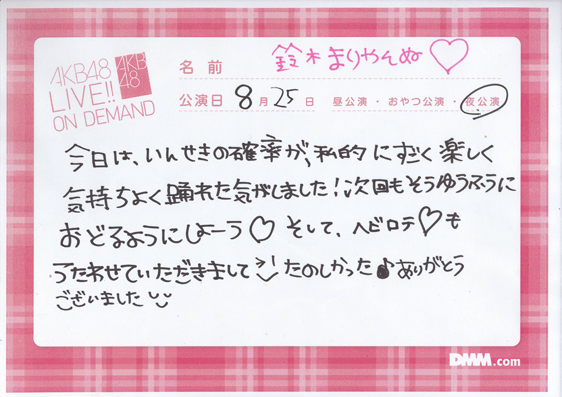 AKB48
LIVE!!
ON DEMAND
AKB
48
名前 鈴木まりやんぬ♡
公演日 8月25日 昼公演・おやつ公演・夜公演
今日は、いんせきの確率が、私的にすごく楽しく
気持ちよく踊れた気がしました！次回もそうゆうふうに
おどるようにしよーう♡ そして、ヘビロテ♡も
うたわせていただきまして たのしかった♪ありがとう
ございました
DMM.com